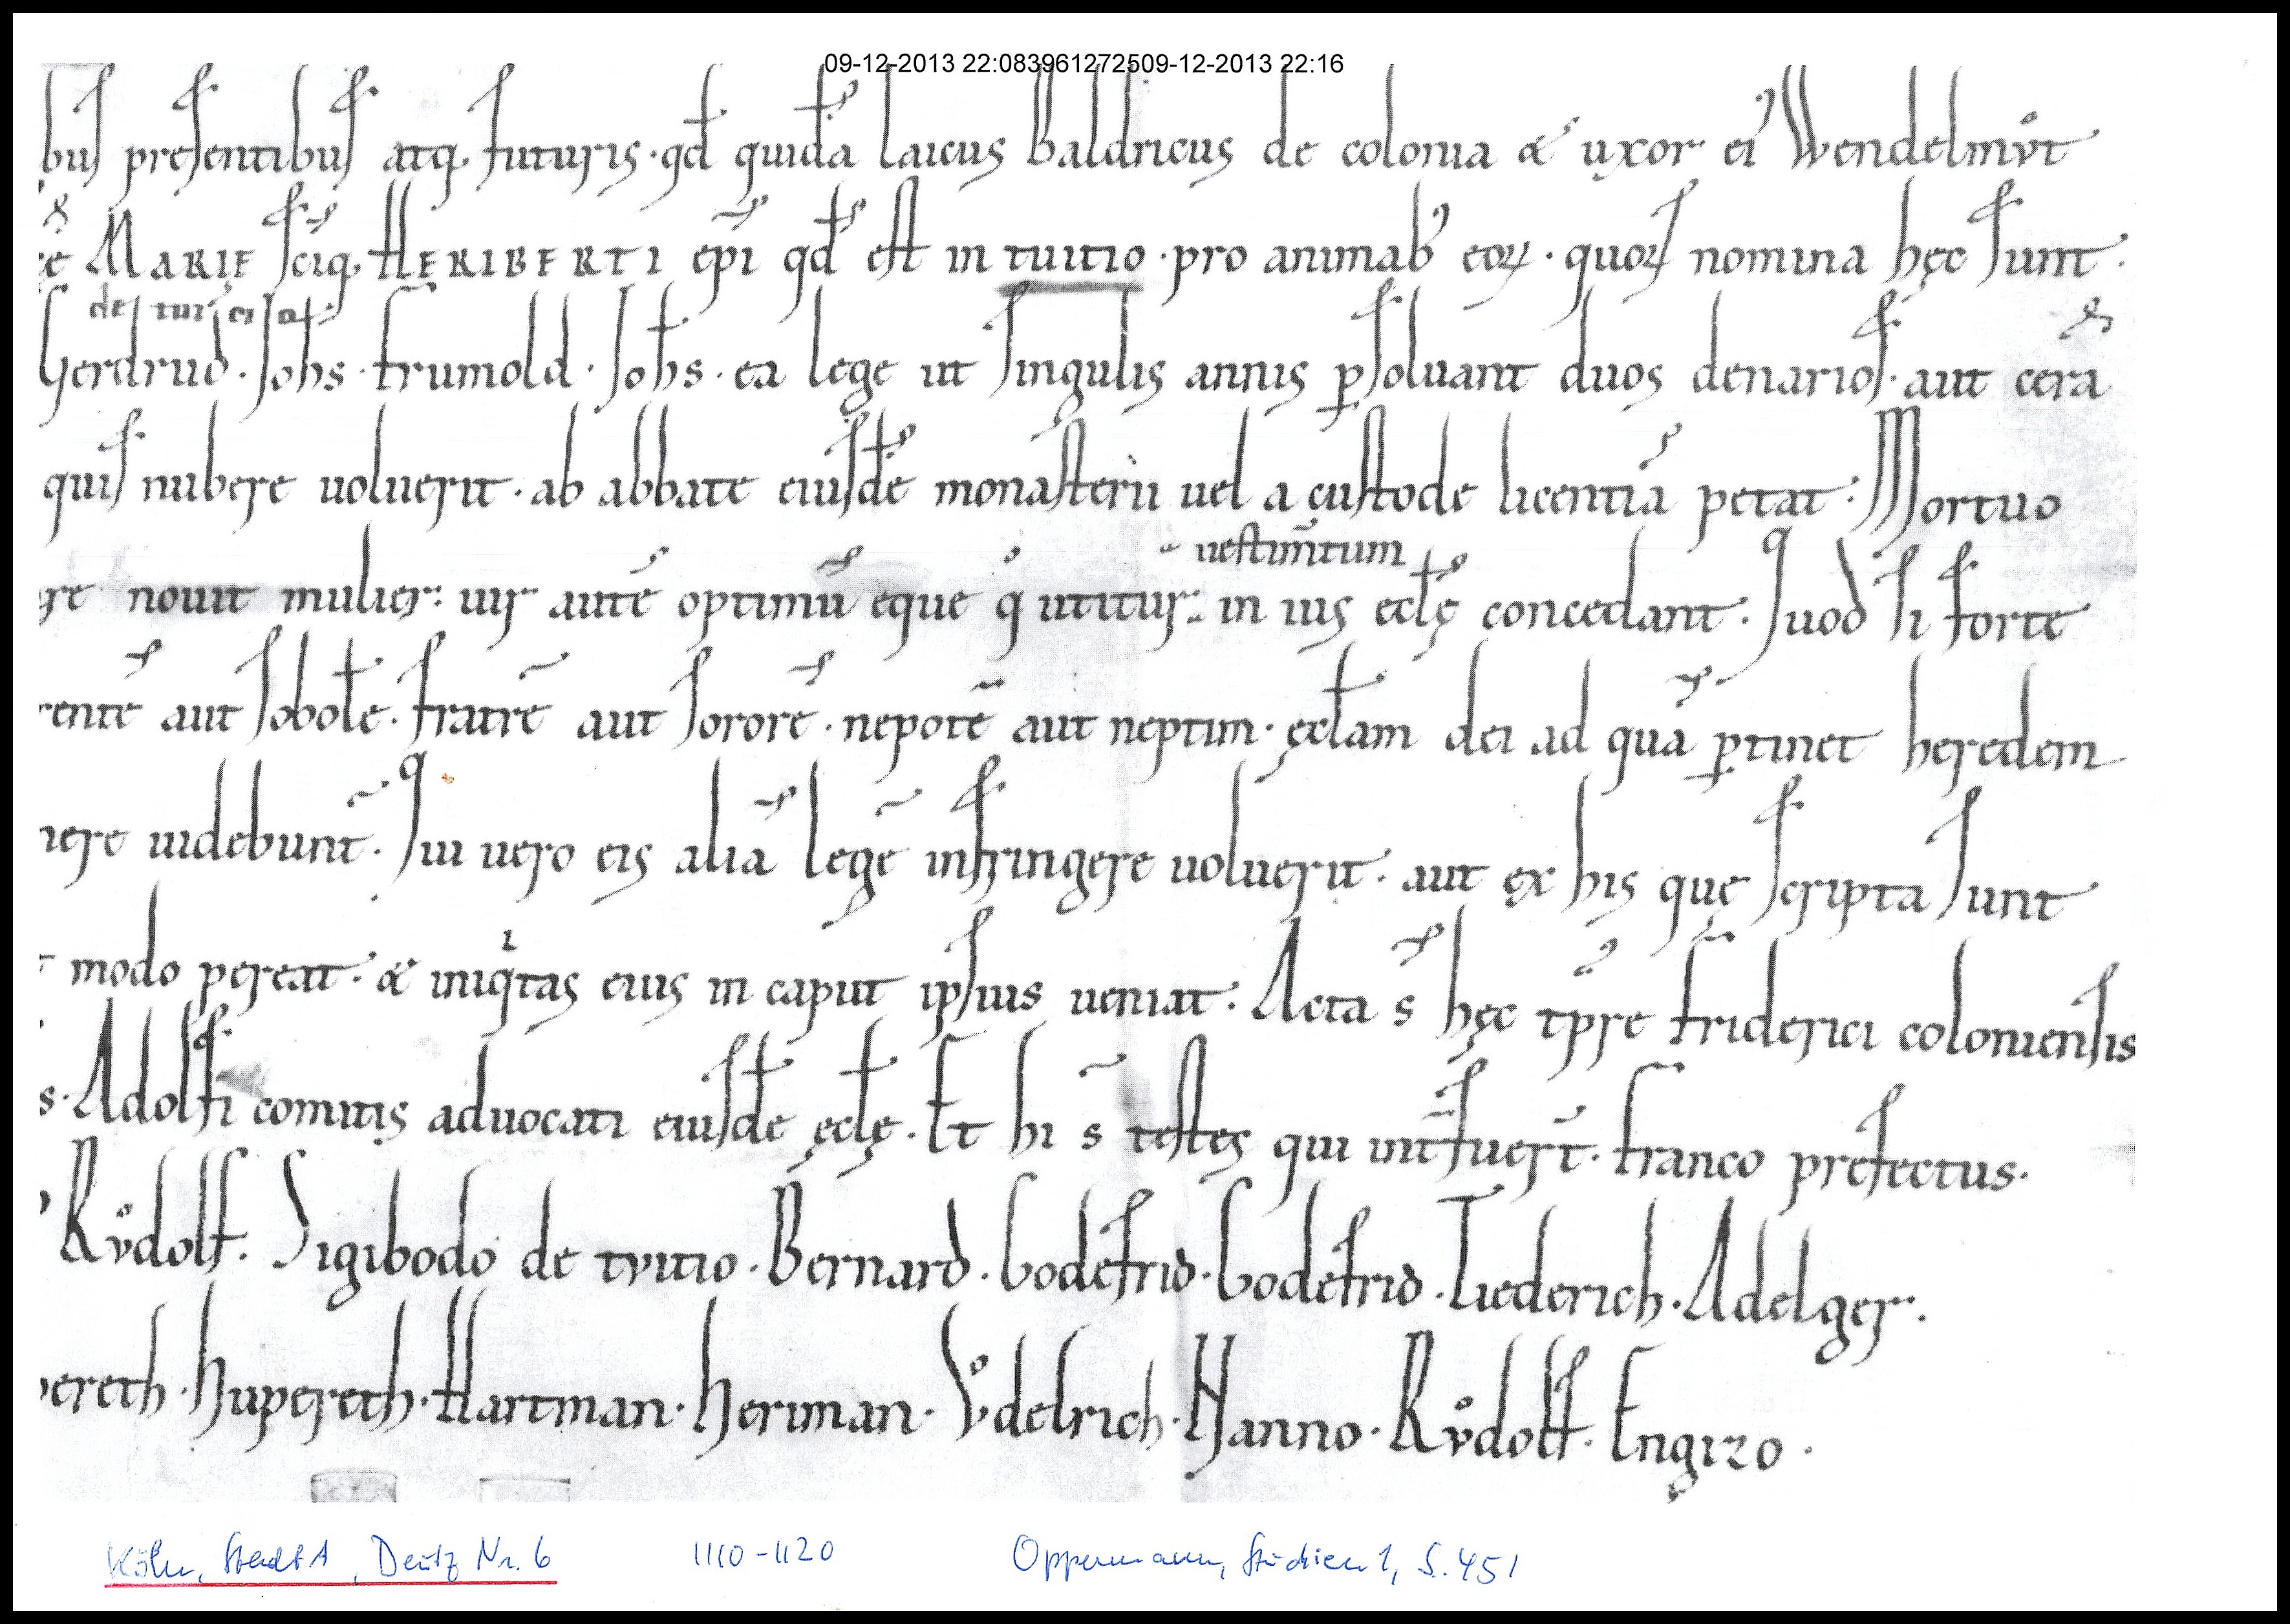 09-12-2013 22:083961272509-12-2013 22:16
bus presentibus atq, futuris · qd̄ quidā laicus Baldricus de colonia & uxor ei' Wendelmůt
cę MARIE sc̄iq, HERIBERTI ep̄i qd̄ est in tuitio · pro animab' eoꝝ · quoꝝ nomina hęc sunt ·
de turci a
Gerdrud · Joh̄s · frumold · Joh̄s · ea lege ut singulis annis ꝑsoluant duos denarios · aut cerā
quis nubere uoluerit · ab abbate eiusdē monasterii uel a custode licentiā petat : Mortuo
uestim̄tum
ere nouit mulier : uir autē optimū eque q̊ utitur : in ius eccl̄ę concedant · Quod si forte
rentē aut sobolē · fratrē aut sororē · nepotē aut neptim · ęccl̄am dei ad quā ꝑtinet heredem
nere uidebunt̄ · Qui uero eis aliā legē infringere uoluerit · aut ex his quę scripta sunt
modo pereat · & iniqͥtas eius in caput ipsius ueniat · Acta s̄ hęc tp̄re friderici coloniensis
s · Adolfi comitis aduocati eiusdē ęccl̄ę · Et hi s̄ testes qui int̄fuer̄t · franco prefectus ·
Růdolf · Sigibodo de tvitio · Bernard · Godefrid · Godefrid · Tiederich · Adelger ·
bereth · Hupereth · Hartman · Heriman · V̊delrich · Hanno · Růdolf · Engizo ·
Köln, StadtA, Deutz Nr. 6 1110-1120 Oppermann, Studien 1, S. 451